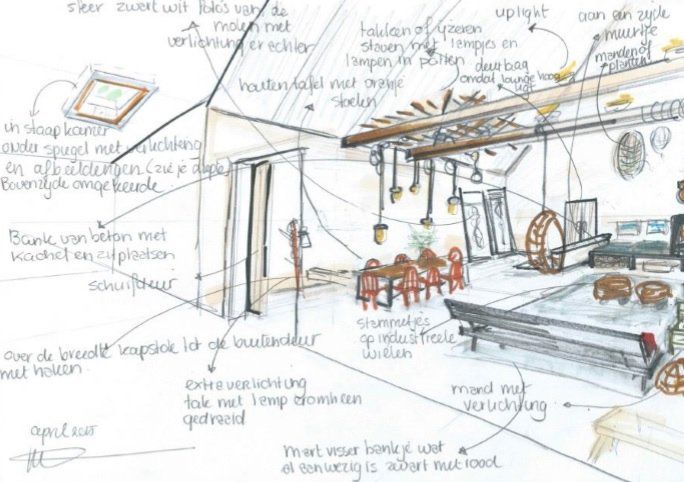 sfeer zwart wit foto's van de
molen met
verlichting erachter
takken of ijzeren
staven met lampjes en
lampen in potten
uplight
aan een zijde
muurtje
manden of
planten
omdat lounge hoog
houten tafel met oranje
stoelen
in slaapkamer
onder spiegel met verlichting
en afbeeldingen (zie je
Bovenzijde omgekeerde
Bank van beton met
kachel en zitplaatsen
schuifdeur
over de breedte kapstok tot de buitendeur
met haken
extra verlichting
tak met lamp eromheen
gedraaid
stammetjes
op industrieele
wielen
mand met
verlichting
mart visser bankje wat
al aanwezig is zwart met rood
april 2015